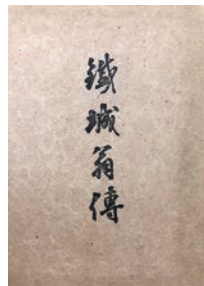 鐵城翁傳